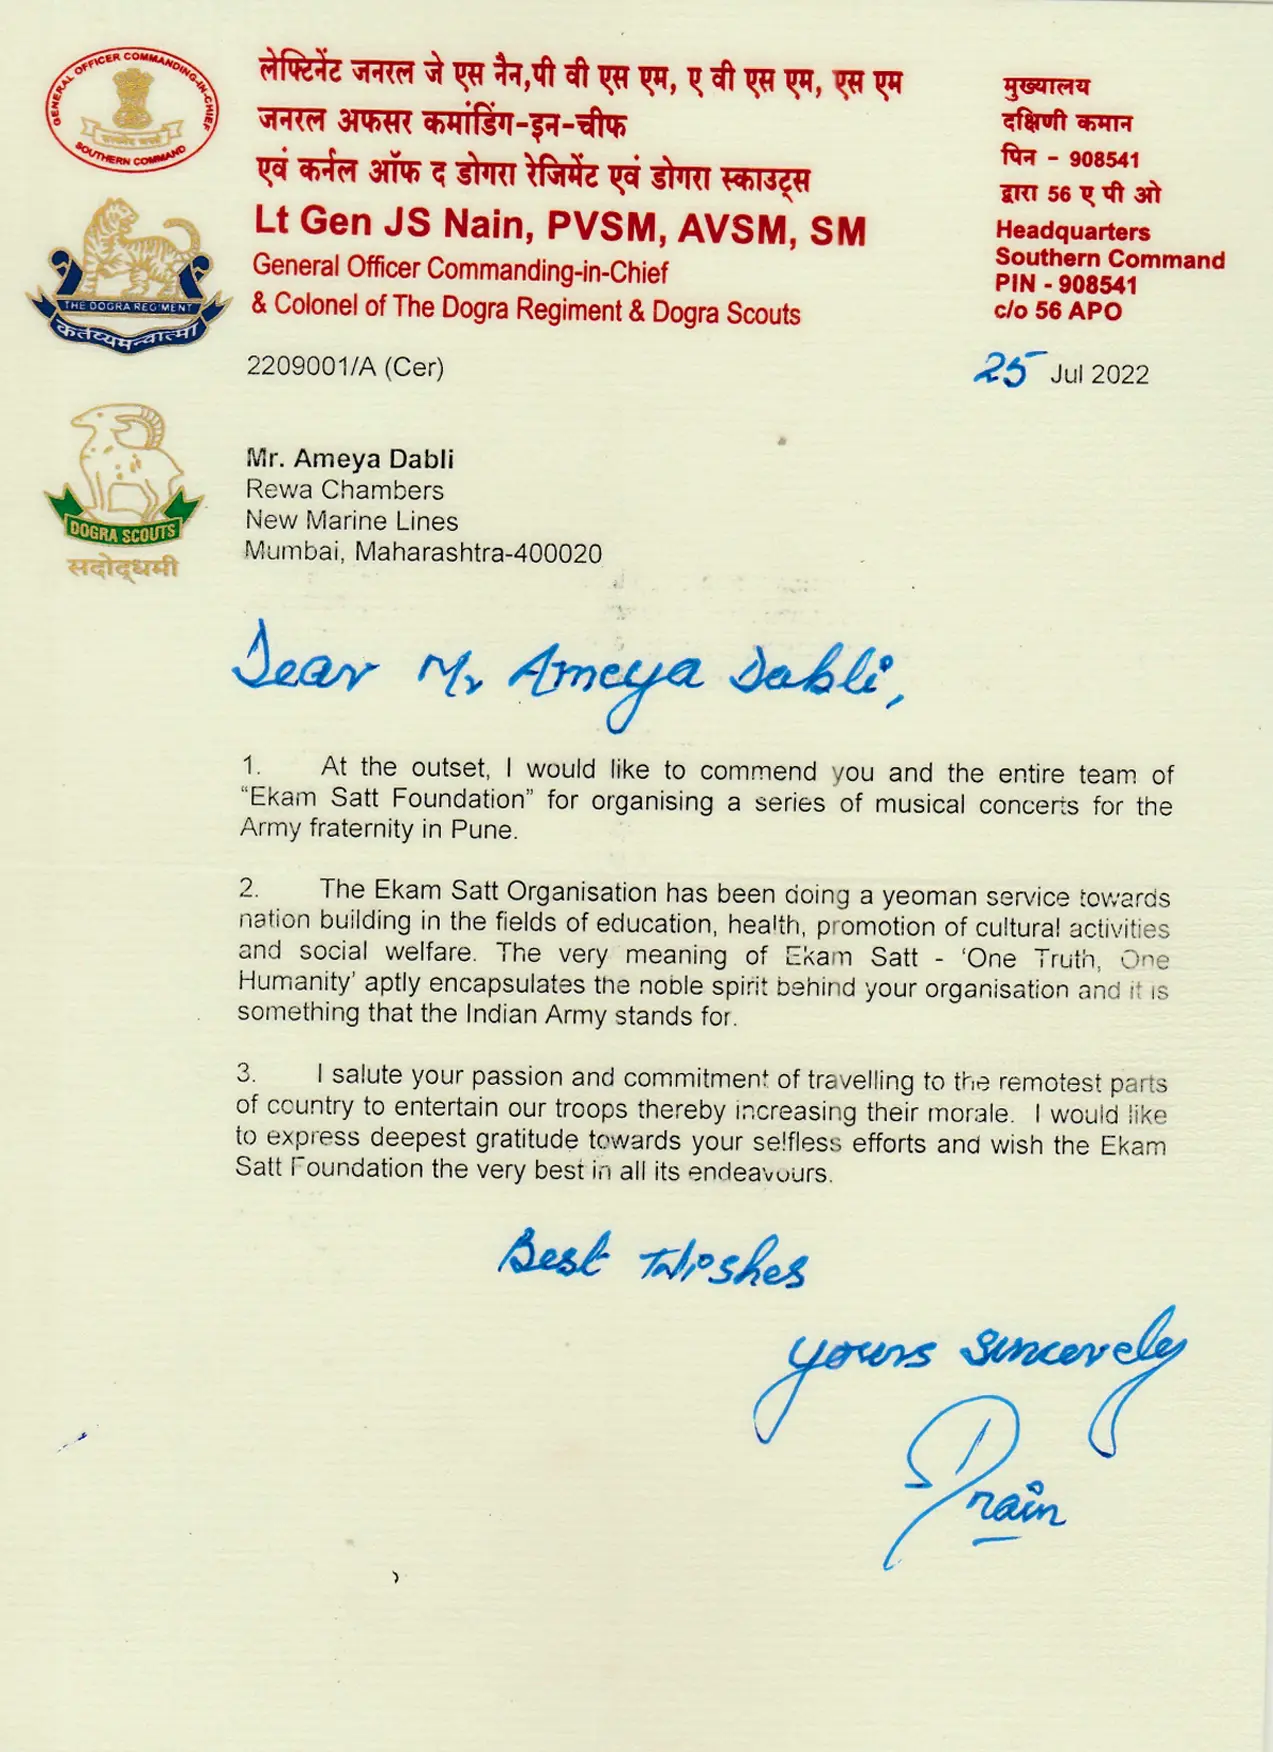 GENERAL OFFICER COMMANDING-IN-CHIEF
SOUTHERN COMMAND
लेफ्टिनेंट जनरल जे एस नैन,पी वी एस एम, ए वी एस एम, एस एम
जनरल अफसर कमांडिंग-इन-चीफ
एवं कर्नल ऑफ द डोगरा रेजिमेंट एवं डोगरा स्काउट्स
Lt Gen JS Nain, PVSM, AVSM, SM
General Officer Commanding-in-Chief
& Colonel of The Dogra Regiment & Dogra Scouts
मुख्यालय
दक्षिणी कमान
पिन - 908541
द्वारा 56 ए पी ओ
Headquarters
Southern Command
PIN - 908541
c/o 56 APO
THE DOGRA REGIMENT
कर्तव्यमन्वात्मा
2209001/A (Cer)
25 Jul 2022
DOGRA SCOUTS
सदोद्धमी
Mr. Ameya Dabli
Rewa Chambers
New Marine Lines
Mumbai, Maharashtra-400020
Dear Mr Ameya Dabli,
1. At the outset, I would like to commend you and the entire team of
“Ekam Satt Foundation” for organising a series of musical concerts for the
Army fraternity in Pune.
2. The Ekam Satt Organisation has been doing a yeoman service towards
nation building in the fields of education, health, promotion of cultural activities
and social welfare. The very meaning of Ekam Satt - ‘One Truth, One
Humanity’ aptly encapsulates the noble spirit behind your organisation and it is
something that the Indian Army stands for.
3. I salute your passion and commitment of travelling to the remotest parts
of country to entertain our troops thereby increasing their morale. I would like
to express deepest gratitude towards your selfless efforts and wish the Ekam
Satt Foundation the very best in all its endeavours.
Best Wishes
Yours sincerely
nain